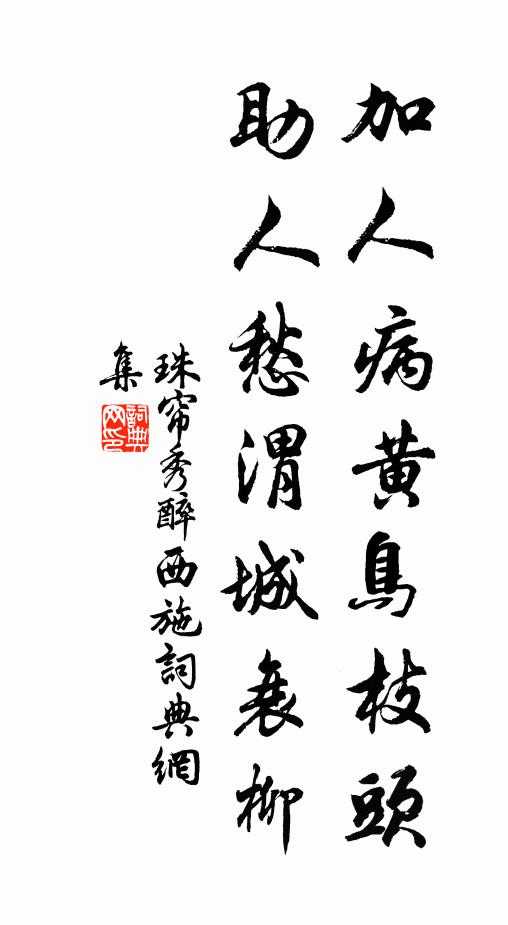 加人病黃鳥枝頭
助人愁渭城衰柳
珠帘秀醉西施詞典網
集
詞典網印